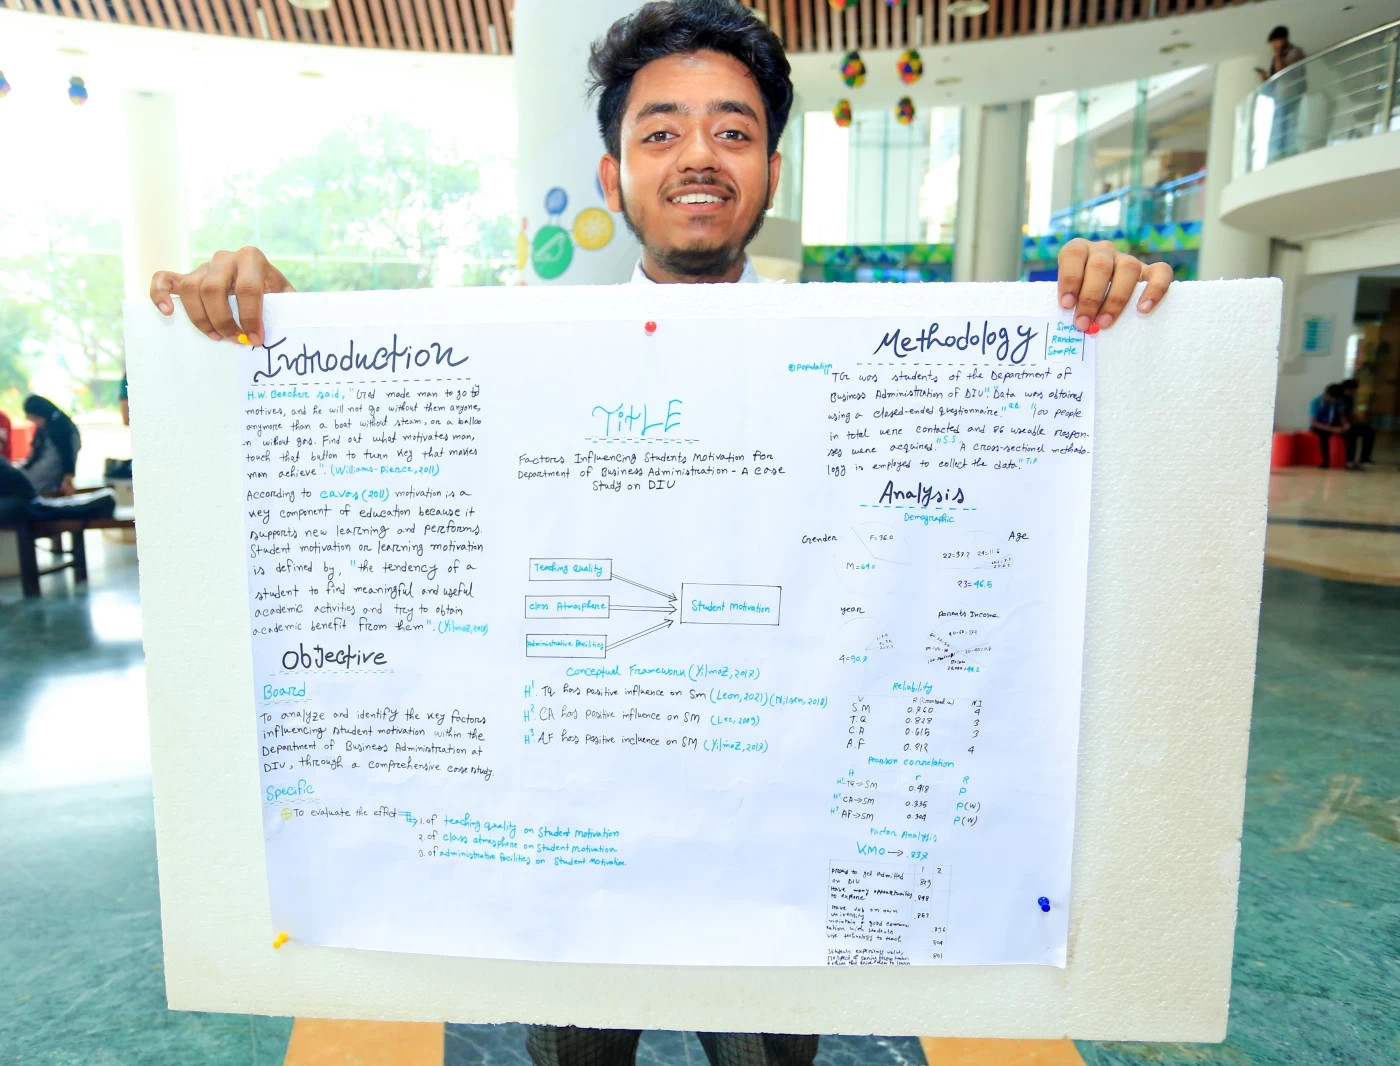 Introduction
H.W. Beecher said, "God made man to go by
motives, and he will not go without them anyone,
anymore than a boat without steam, or a balloo
n without gas. Find out what motivates man,
touch that button to turn key that makes
man achieve". (Williams-Pierce, 2011)
According to cavos (2011) motivation is a
key component of education because it
supports new learning and performs.
Student motivation or learning motivation
is defined by, "the tendency of a
student to find meaningful and useful
academic activities and try to obtain
academic benefit from them". (Yilmaz, 2018)
Objective
Board
To analyze and identify the key factors
influencing student motivation within the
Department of Business Administration at
DIU, through a comprehensive case study.
Specific
To evaluate the effect
1. of teaching quality on Student Motivation
2. of class atmosphere on Student Motivation
3. of administrative facilities on Student Motivation
TITLE
Factors Influencing Students Motivation for
Department of Business Administration - A Case
Study on DIU
Teaching Quality
Class Atmosphere
Administrative Facilities
Student Motivation
Conceptual Framework (Yilmaz, 2017)
H1. TQ has positive influence on SM (Leon, 2021) (Nilsen, 2018)
H2. CA has positive influence on SM (Lee, 2009)
H3. AF has positive incluence on SM (Yilmaz, 2017)
Methodology
Simple
Random
Sample
Population
TG was students of the Department of
Business Administration of DIU. Data was obtained
using a closed-ended questionnaire. "100 people
in total were contacted and 86 useable respon-
ses were acquired." S.S "A cross-sectional methodo-
logy is employed to collect the data." T.P
Analysis
Demographic
Gender
F=36.0
M=64.0
Age
22=37.2 24=11.6
23=46.5
year
4=90.7
parents Income
Reliability
S.M 0.760 4
T.Q 0.828 3
C.A 0.615 3
A.F 0.812 4
Pearson correlation
H r P
H1 TQ→SM 0.418 P
H2 CA→SM 0.335 P(W)
H3 AF→SM 0.304 P(W)
Factor Analysis
KMO → .832
1 2
Proud to get admitted
on DIU
Have many opportunities
to explore .848
Have Job on own
university .867
maintain a good commu-
nication with students
use technology to teach